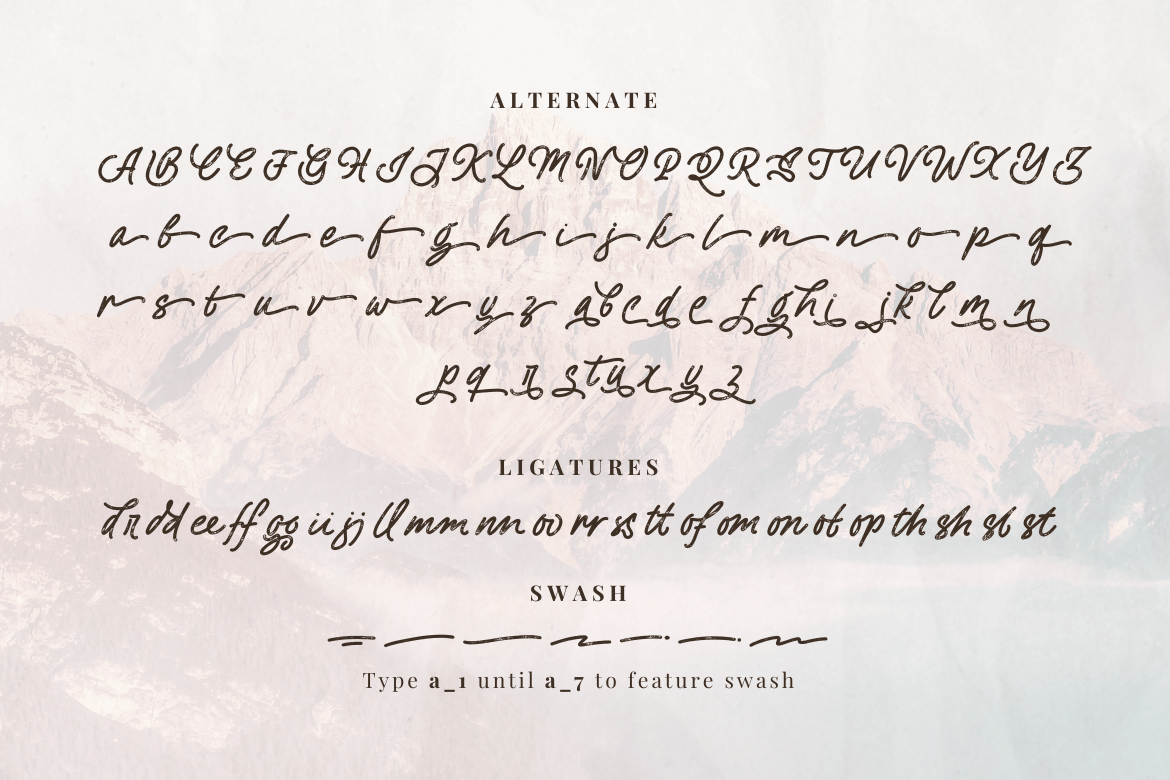 ALTERNATE
A B C E F G H I J K L M N O P Q R S T U V W X Y Z
a b c d e f g h i j k l m n o p q
r s t u v w x y z a b c d e f g h i j k l m n
p q r s t u x y z
LIGATURES
dr dd ee ff gg ii jj ll mm nn oo rr ss tt of om on ot op th sh sl st
SWASH
Type a_1 until a_7 to feature swash